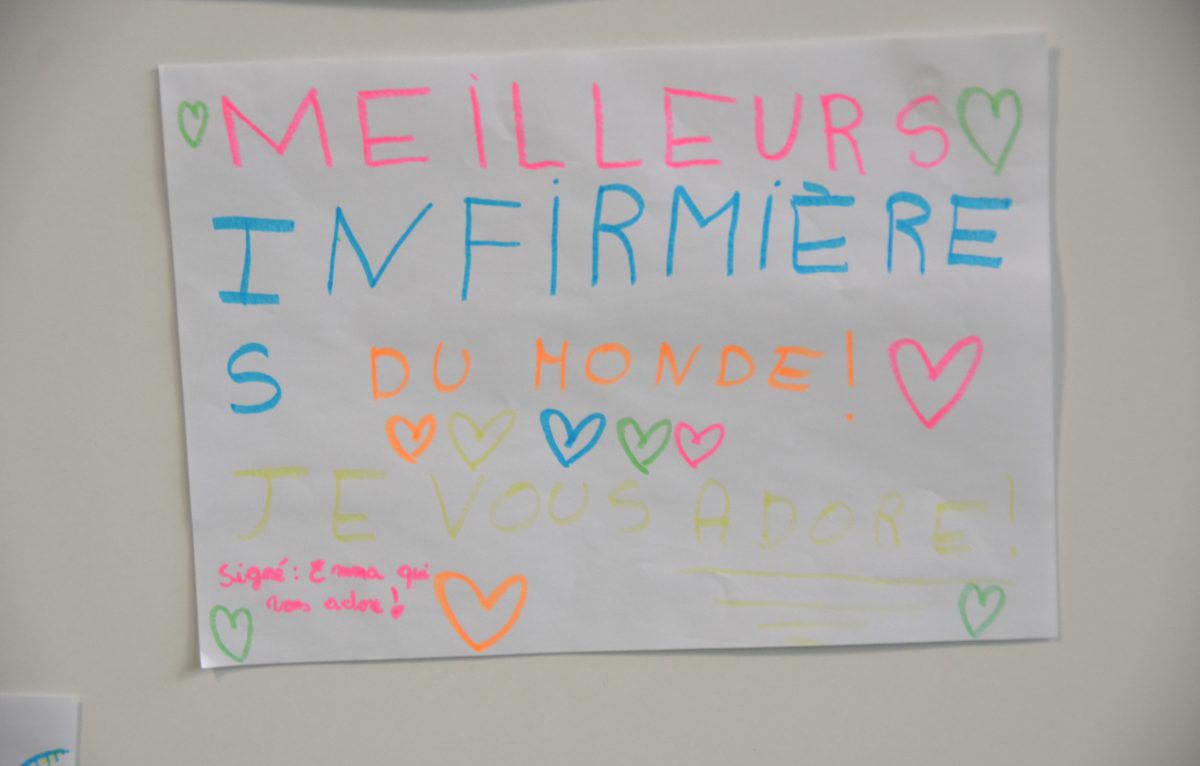 MEiLLEURS
INFiRMiÈRE
S DU MONDE!
JE VOUS ADORE!
Signé: Emma qui
vous adore!